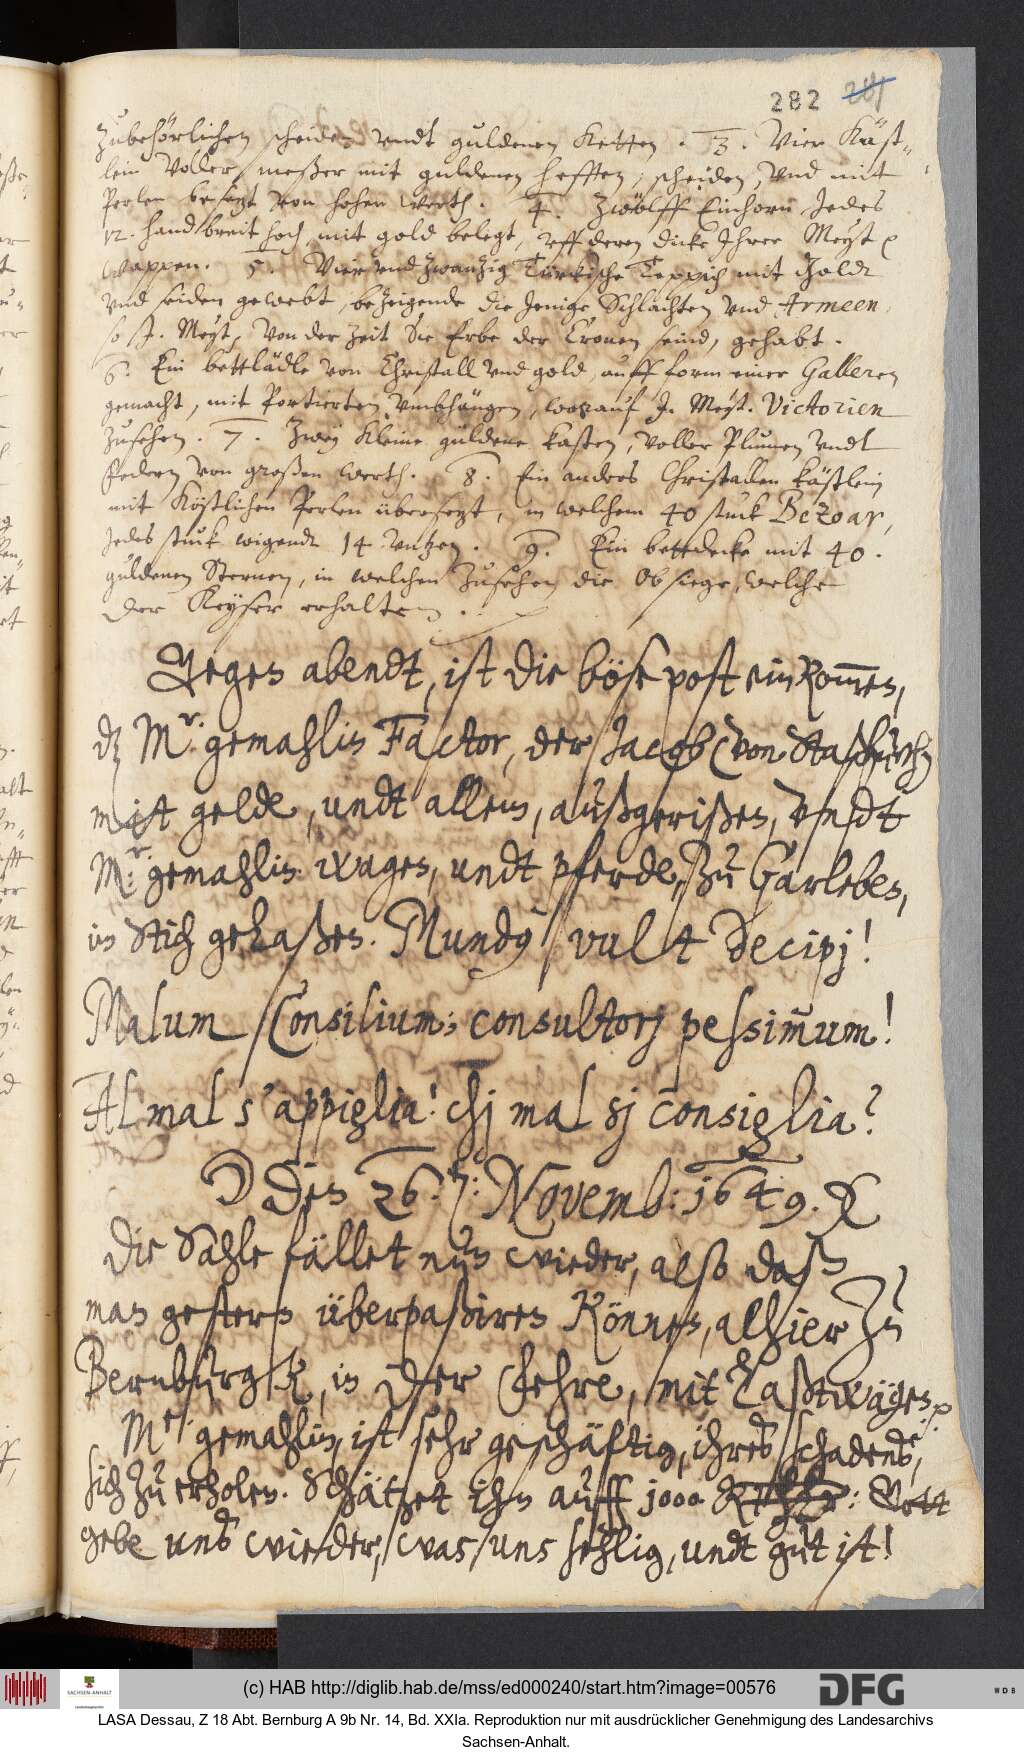 282 281
Zubehörlichen scheiden vndt guldenen Ketten . 3. Vier Käst-
lein Voller meßer mit guldenen hefften, scheiden, vnd mit
Perlen besezt von hohen werth. 4. Zwölff Einhorn Jedes
12. hand breit hoch, mit gold belegt, vff deren dicke Ihrer Mayst
wappen. 5. Vier vnd zwanzig Türkische Teppich mit Goldt
vnd seiden gewebt, bezeigende die Jenige Schlachten vnd Armeen,
so J. Mayst, von der Zeit Sie Erbe der Cronen seind, gehabt.
6. Ein bettlädle von Christall vnd gold, auff form einer Galleren
gemacht, mit Portierten vmbhängen, worauf J. Mayst. Victorien
Zusehen. 7. Zwey Kleine güldene kasten, voller Plumen vndt
federn von großen werth. 8. Ein anders Christallen kästlein
mit Köstlichen Perlen übersezt, in welchem 40 stuck Bezoar,
Jedes stuk wigendt 14 vntzen. 9. Ein bettdecke mit 40.
guldenen Sternen, in welchen Zusehen die Obsiege, welche
der Keyser erhalten.
Gegen abendt, ist die böse post ein kom̄en,
dz Mr: gemahlin Factor, der Jacob von
mitt gelde, undt allem, außgerißen, undt
Mr: gemahlin wagen, undt pferde, zu Garleben,
in stich gelaßen. Mundus vult decipj!
Malum Consilium; consultorj pessim̄um!
Al mal s'appiglia! chj mal sj consiglia?
den 26. Novemb: 1649.
Die Sahle fället nun wieder, also daß
man gestern überpaßiren können, alhier zu
Bernburgk, in der Fehre, mit lastwägen
Mr gemahlin, ist sehr geschäftig, ihres schadens,
sich zu erholen. Schätzet ihn auff 1000 Gott
gebe uns wieder, was uns sehlig, undt gut ist!
(c) HAB http://diglib.hab.de/mss/ed000240/start.htm?image=00576
SACHSEN-ANHALT
DFG
WDB
LASA Dessau, Z 18 Abt. Bernburg A 9b Nr. 14, Bd. XXIa. Reproduktion nur mit ausdrücklicher Genehmigung des Landesarchivs
Sachsen-Anhalt.